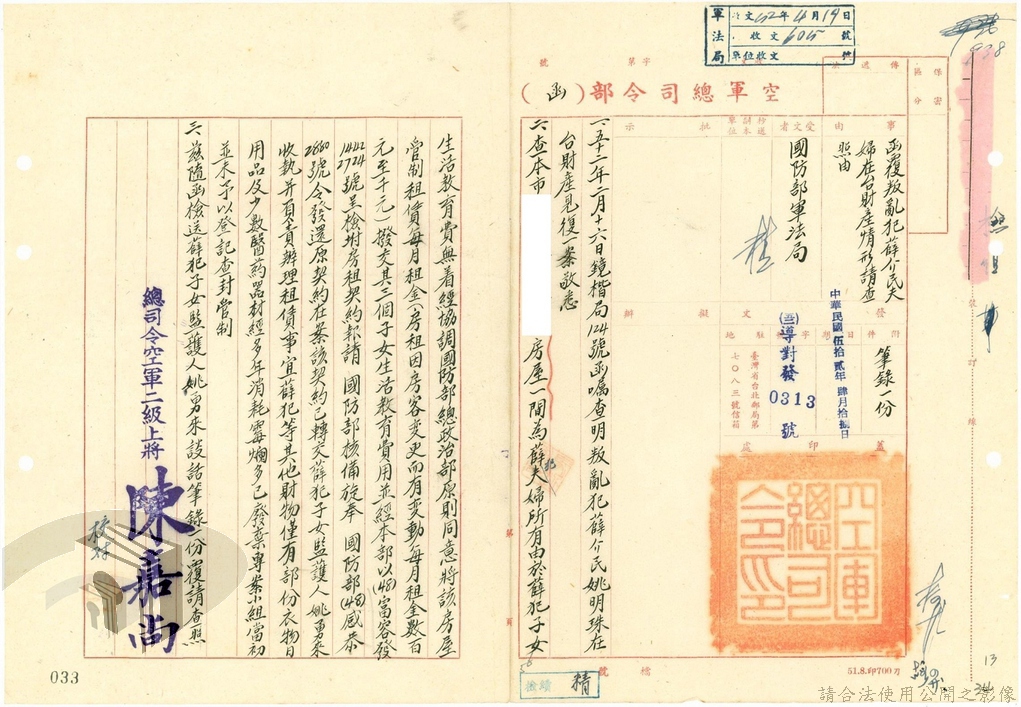 軍法局
收文 52年4月19日
收文 605 號
單位收文 號
938
字第 號
空軍總司令部(函)
保密
區分
傳遞
事由
函覆叛亂犯薛介民夫
婦在台財產情形請查
照由
受文者
國防部軍法局
抄送
副本
單位
批示
擬辦
發文
附件
筆錄一份
日期
中華民國伍拾貳年肆月拾捌日
字號
(三)導對發
0313
號
駐地
臺灣省台北郵局第
七〇八三號信箱
蓋印處
空軍總司令印
一、五十二年二月十六日鏡楷局124號函囑查明叛亂犯薛介民姚明珠在
台財產見復一案敬悉
二、查本市 房屋一間為薛夫婦所有由於薛犯子女
生活教育費無着經協調國防部總政治部原則同意將該房屋
管制租賃每月租金(房租因房客變更而有變動每月租金數百
元至千元)撥交其三個子女生活教育費用並經本部以(48)富容發
1442 2724號呈檢坿房租契約報請 國防部核備旋奉 國防部(48)感恭
2660號令發還原契約在案該契約已轉交薛犯子女監護人姚勇來
收執并負責辦理租賃事宜薛犯等其他財物僅有部份衣物日
用品及少數醫药器材經多年消耗霉爛多已廢棄專案小組當初
並未予以登記查封管制
三、茲隨函檢送薛犯子女監護人姚勇來談話筆錄一份覆請查照
總司令空軍二級上將 陳嘉尚
校對
裝訂線
第 頁
檔號
精
51.8.印700刀
13
033
請合法使用公開之影像